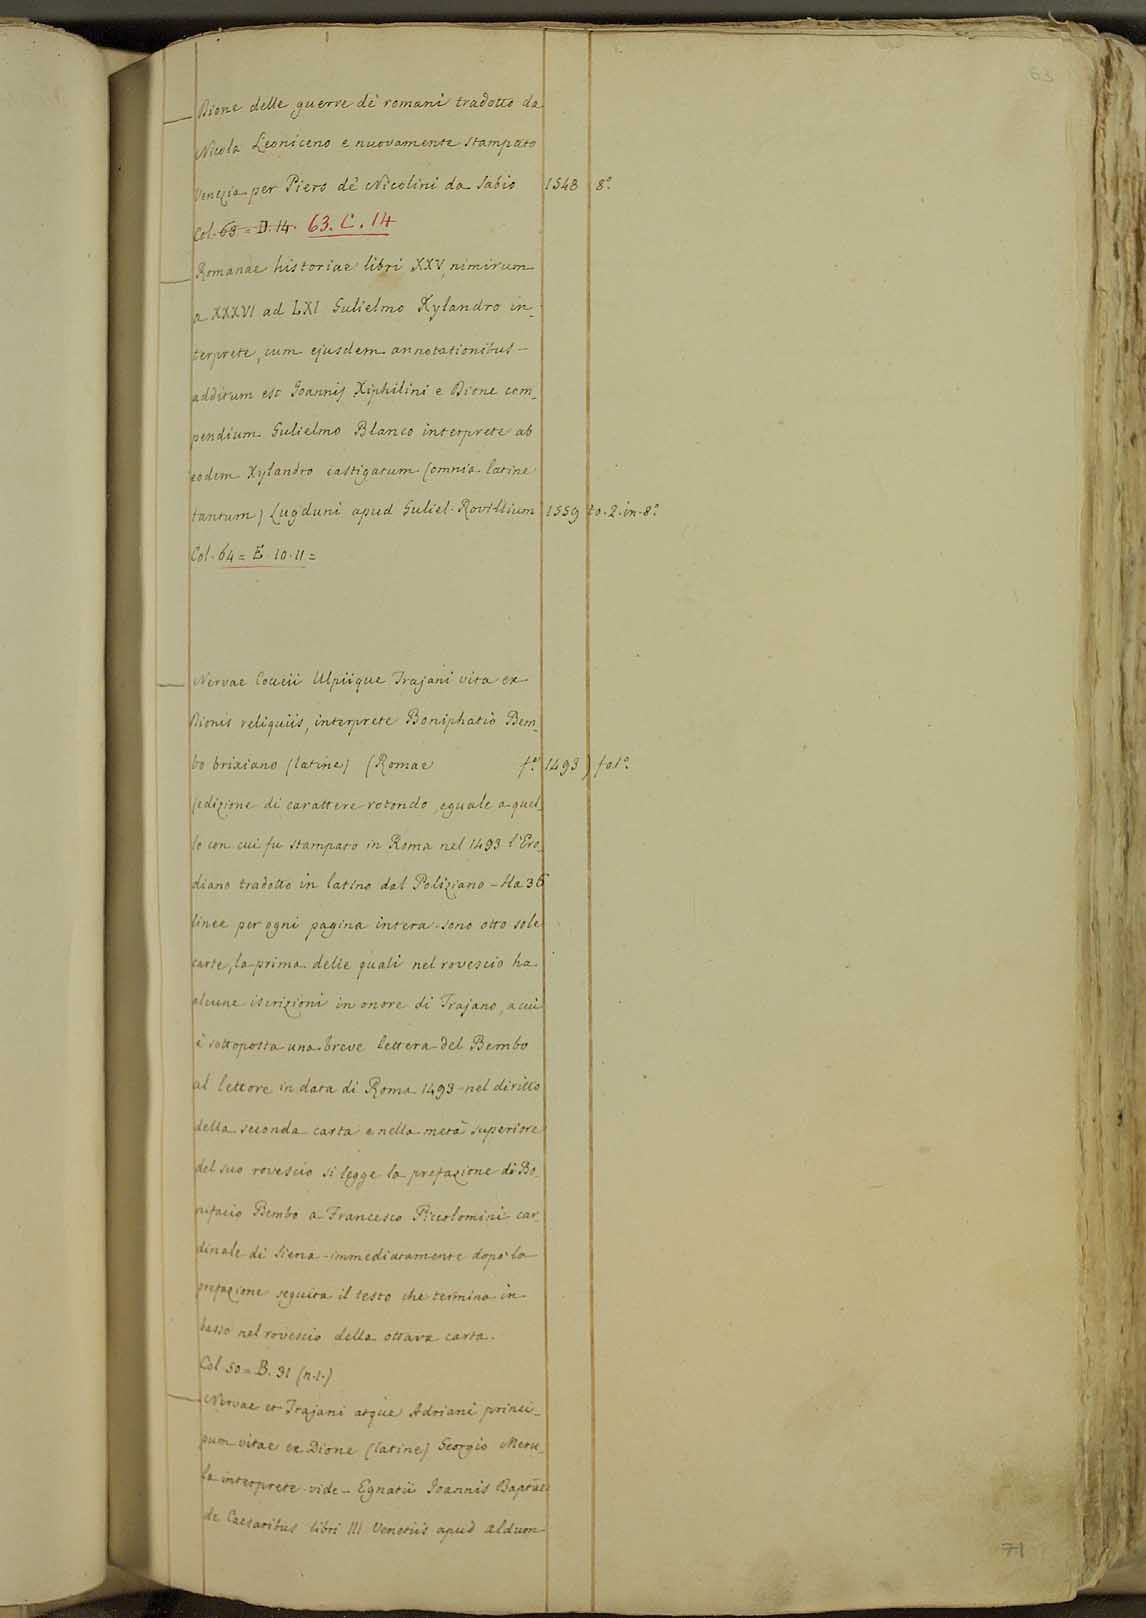 63
Dione delle guerre de' romani tradotto da
Nicola Leoniceno e nuovamente stampato
Venezia per Piero de' Nicolini da Sabio 1548 8°
Col. 63 = D. 14. 63. C. 14
Romanae historiae libri XXV, nimirum
a XXXVI ad LXI Gulielmo Xylandro in_
terprete, cum ejusdem annotationibus –
additum est Joannis Xiphilini e Dione com_
pendium Gulielmo Blanco interprete ab
eodem Xylandro castigatum (omnia latine
tantum) Lugduni apud Guliel. Rovillium 1559 to. 2. in 8°
Col. 64 = E. 10. 11 =
Nervae Cocceii Ulpiique Trajani vita ex
Dionis reliquiis, interprete Boniphatio Bem_
bo brixiano (latine) (Romae f.e 1493) fol°
(edizione di carattere rotondo, eguale a quel_
lo con cui fu stampato in Roma nel 1493 l'Ero_
diano tradotto in latino dal Poliziano – Ha 36
linee per ogni pagina intera. sono otto sole
carte, la prima delle quali nel rovescio ha
alcune iscrizioni in onore di Trajano, a cui
è sottoposta una breve lettera del Bembo
al lettore in data di Roma 1493 – nel diritto
della seconda carta e nella metà superiore
del suo rovescio si legge la prefazione di Bo_
nifacio Bembo a Francesco Piccolomini car_
dinale di Siena – immediatamente dopo la
prefazione seguita il testo che termina in
basso nel rovescio della ottava carta.
Col. 50 = B. 31 (n. 1.)
Nervae et Trajani atque Adriani princi_
pum vitae ex Dione (latine) Georgio Meru_
la interprete vide – Egnatii Joannis Baptae
de Caesaribus libri III Venetiis apud aldum
71